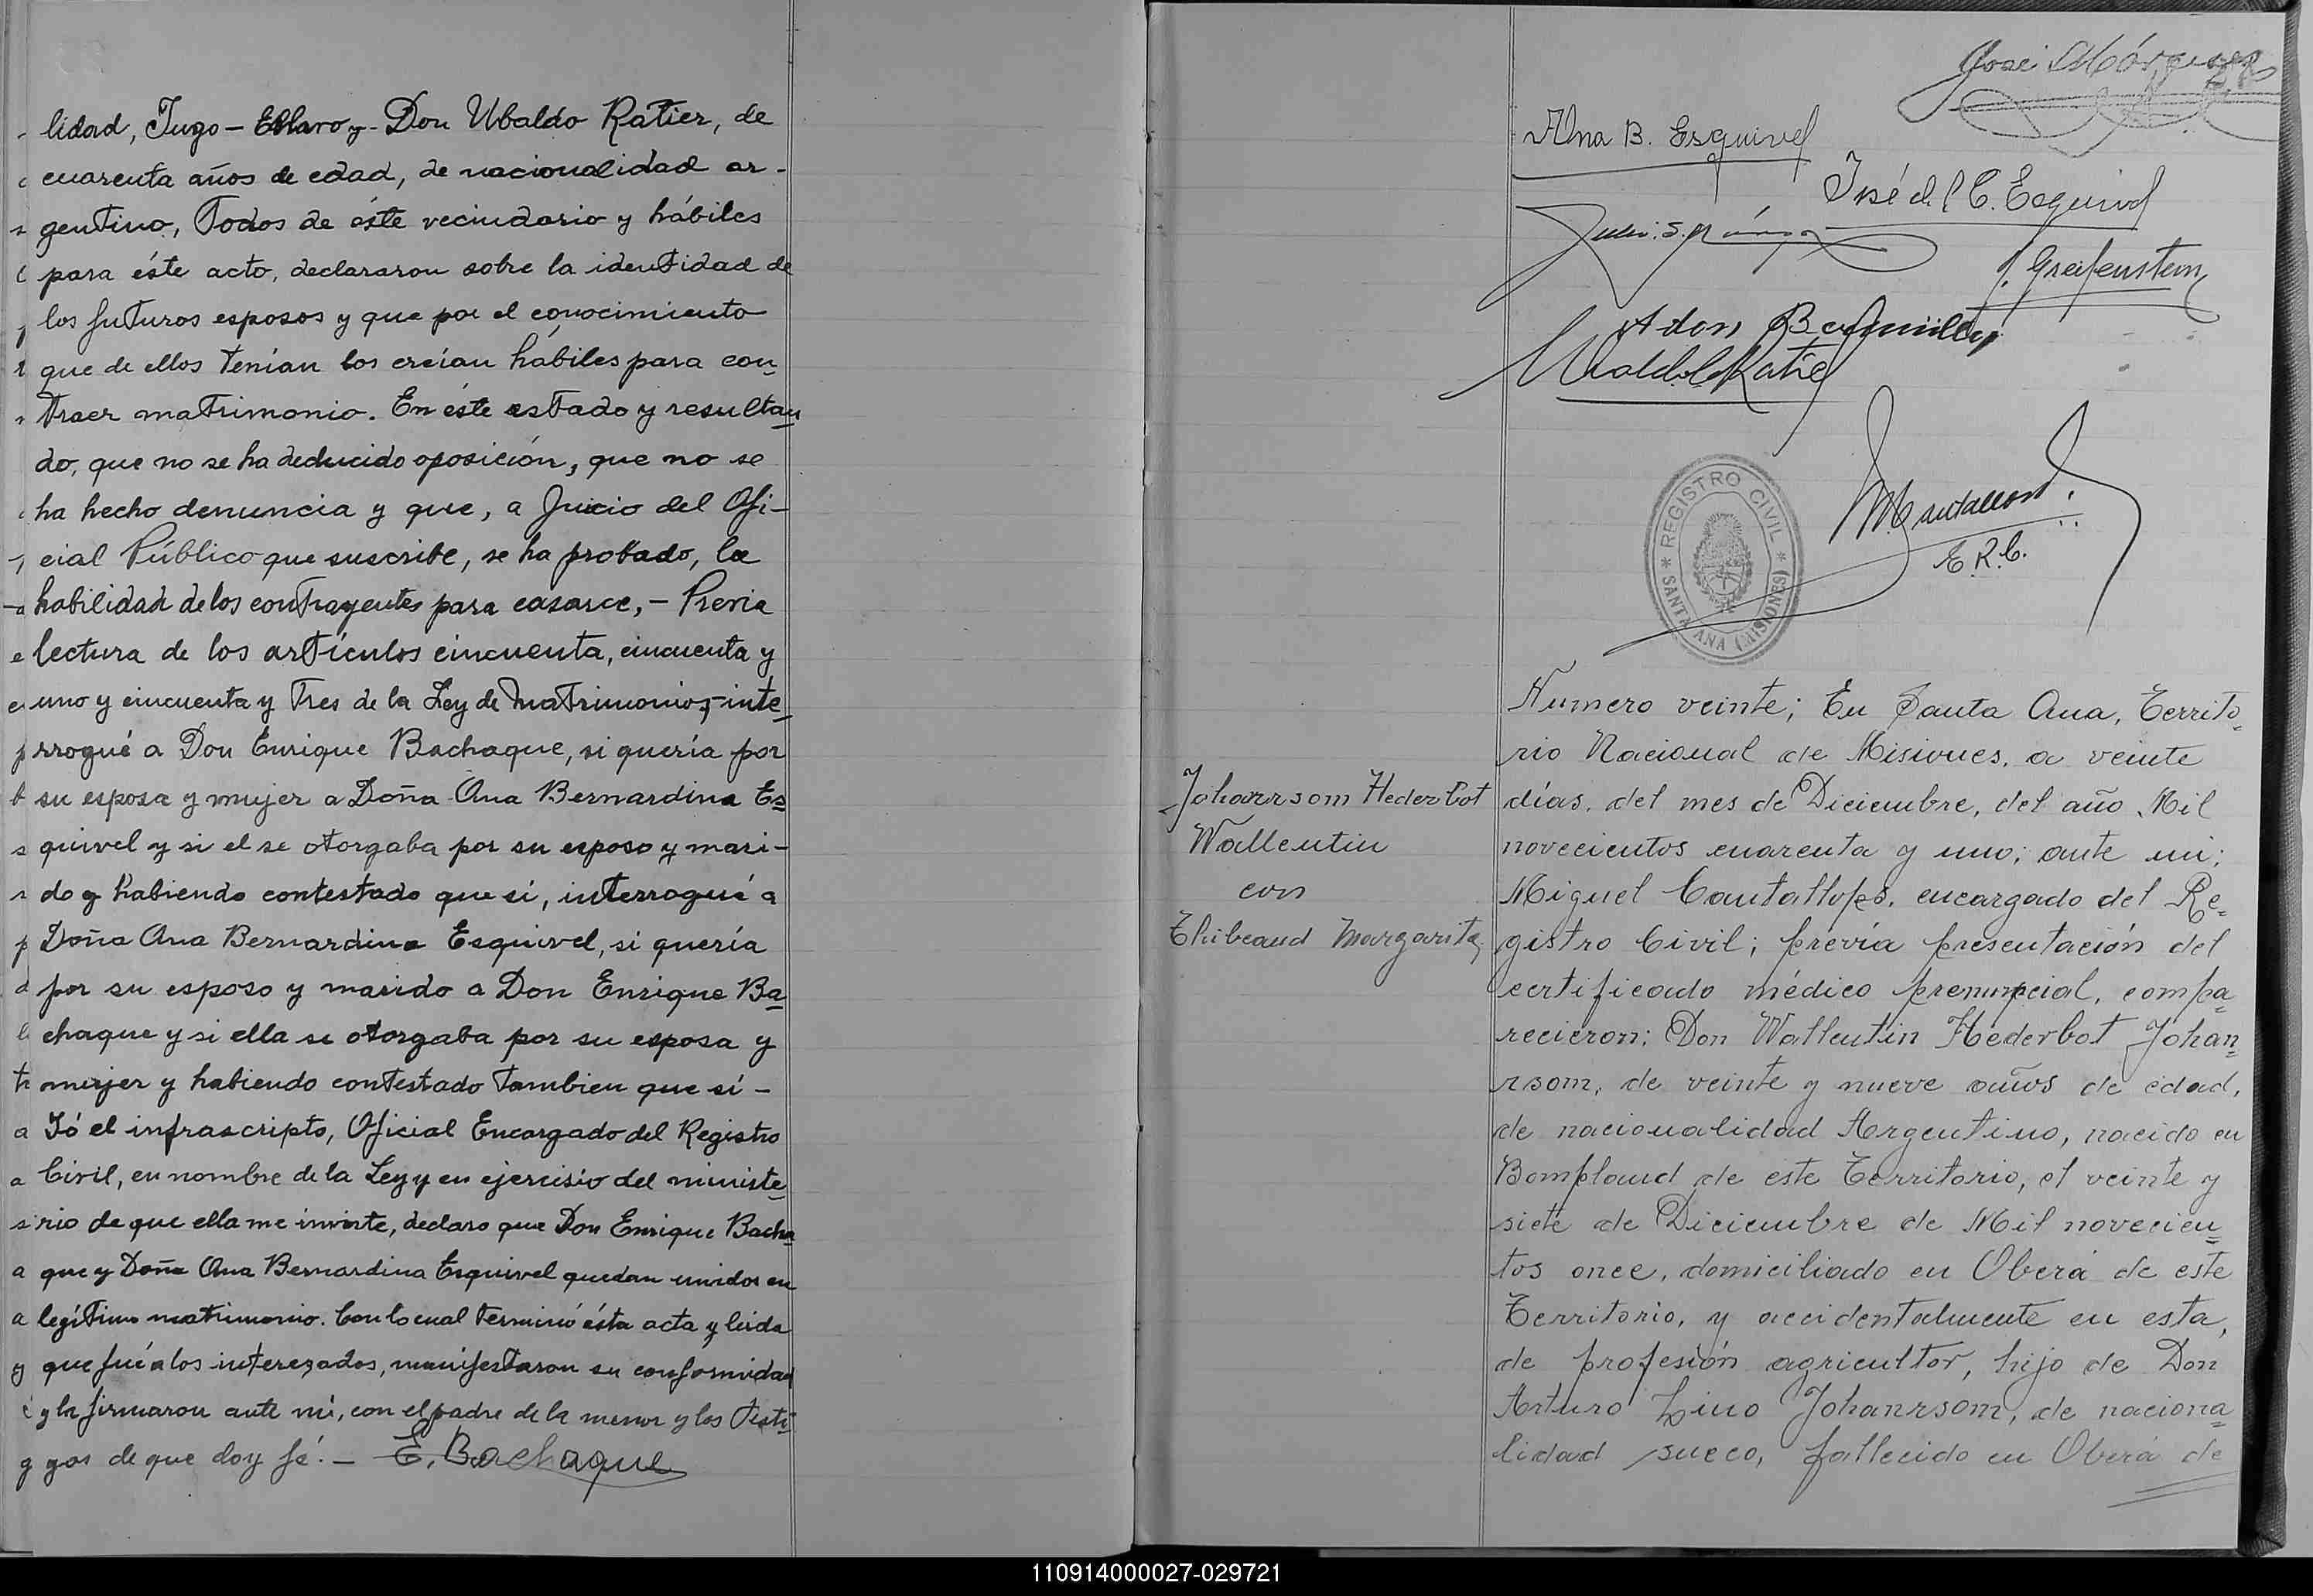 lidad, Jugo-Eslavo y- Don Ubaldo Ratier, de
cuarenta años de edad, de nacionalidad ar-
gentino, Todos de éste vecindario y hábiles
para éste acto, declararon sobre la identidad de
los futuros esposos y que por el conocimiento
que de ellos tenían los creían hábiles para con
traer matrimonio. En éste estado y resultan
do, que no se ha deducido oposición, que no se
ha hecho denuncia y que, a Juicio del Ofi-
cial Público que suscribe, se ha probado, la
habilidad de los contrayentes para casarce,- Previa
lectura de los artículos cincuenta, cincuenta y
uno y cincuenta y Tres de la Ley de Matrimonio,-inte
rrogué a Don Enrique Bachaque, si quería por
su esposa y mujer a Doña Ana Bernardina Es
quivel y si el se otorgaba por su esposo y mari-
do y habiendo contestado que sí, interrogué a
Doña Ana Bernardina Esquivel, si quería
por su esposo y marido a Don Enrique Ba
chaque y si ella se otorgaba por su esposa y
mujer y habiendo contestado Tambien que sí-
Yó el infrascripto, Oficial Encargado del Registro
Civil, en nombre de la Ley y en ejercisio del ministe
rio de que ella me inviste, declaro que Don Enrique Bacha
que y Doña Ana Bernardina Esquivel quedan unidos en
legítimo matrimonio. Con lo cual terminó ésta acta y leida
que fué a los interezados, manifestaron su conformidad
y la firmaron ante mí, con el padre de la menor y los Testi
gos de que doy fé.- E. Bachaque
José
Ana B. Esquivel
José d. l C. Esquivel
J. Greifenstein
Adon
Ubaldo Ratie
M. Cantallops
E.R.C.
* REGISTRO CIVIL *
SANTA ANA (MISIONES)
Johanrsom Hederbot
Wallentin
con
Thibeaud Margarita
Numero veinte; En Santa Ana, Territo
rio Nacional de Misiones, a veinte
días, del mes de Diciembre, del año Mil
novecientos cuarenta y uno; ante mi;
Miguel Cantallops, encargado del Re
gistro Civil; previa presentación del
certificado médico prenupcial, compa
recieron: Don Wallentin Hederbot Johan
rsom, de veinte y nueve años de edad,
de nacionalidad Argentino, nacido en
Bompland de este Territorio, el veinte y
siete de Diciembre de Mil novecien
tos once, domiciliado en Oberá de este
Territorio, y accidentalmente en esta,
de profesión agricultor, hijo de Don
Arturo Lino Johanrsom, de naciona
lidad sueco, fallecido en Oberá de
110914000027-029721